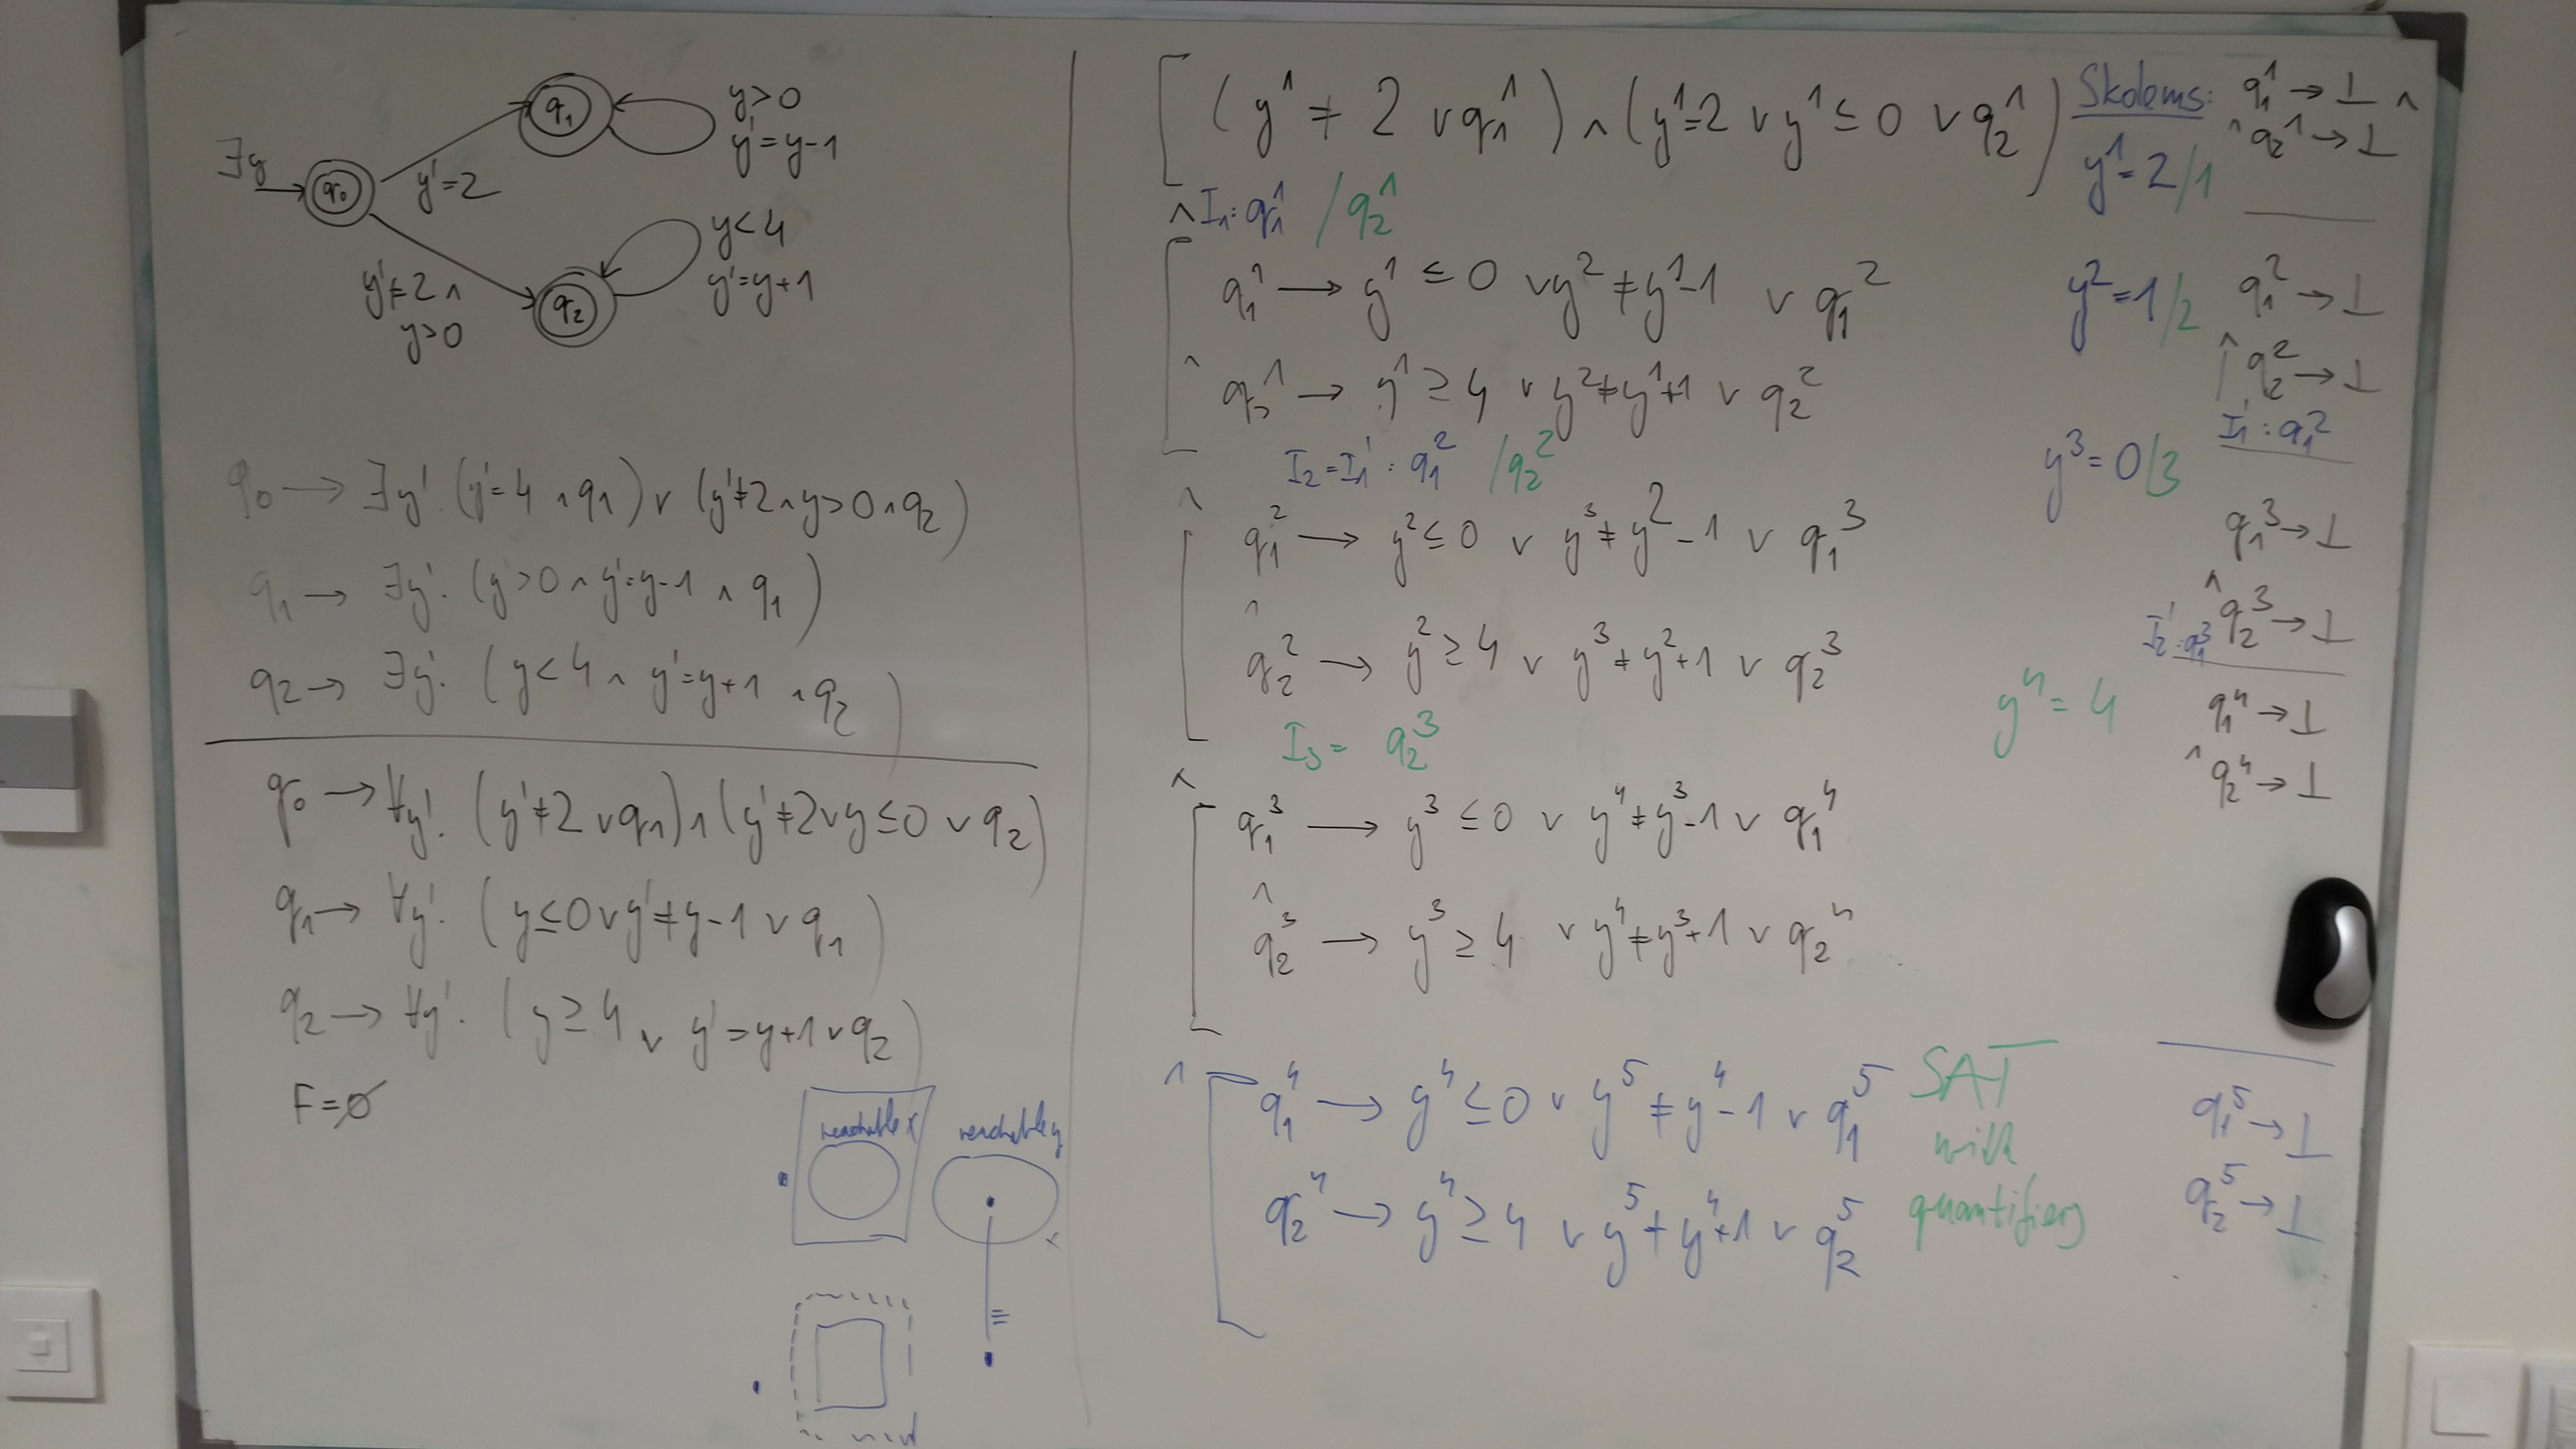 ∃y
q₀
q₁
y'=2
y>0
y'=y-1
y<4
y'=y+1
y'≠2 ∧
y>0
q₂
q₀ → ∃y'. (y'=4 ∧ q₁) ∨ (y'≠2 ∧ y>0 ∧ q₂)
q₁ → ∃y'. (y>0 ∧ y'=y-1 ∧ q₁)
q₂ → ∃y'. (y<4 ∧ y'=y+1 ∧ q₂)
q₀ → ∀y'. (y'≠2 ∨ q₁) ∧ (y'≠2 ∨ y≤0 ∨ q₂)
q₁ → ∀y'. (y≤0 ∨ y'≠y-1 ∨ q₁)
q₂ → ∀y'. (y≥4 ∨ y'=y+1 ∨ q₂)
F=∅
reachable x
reachable y
[(y¹≠2 ∨ q₁¹) ∧ (y¹=2 ∨ y¹≤0 ∨ q₂¹)
∧ I₁: q₁¹ / q₂¹
[q₁¹ → y¹≤0 ∨ y²≠y¹-1 ∨ q₁²
∧ q₂¹ → y¹≥4 ∨ y²≠y¹+1 ∨ q₂²
I₂=I₁': q₁² / q₂²
∧ [q₁² → y²≤0 ∨ y³≠y²-1 ∨ q₁³
∧ q₂² → y²≥4 ∨ y³≠y²+1 ∨ q₂³
I₃= q₂³
∧ [q₁³ → y³≤0 ∨ y⁴≠y³-1 ∨ q₁⁴
∧ q₂³ → y³≥4 ∨ y⁴≠y³+1 ∨ q₂⁴
∧ [q₁⁴ → y⁴≤0 ∨ y⁵≠y⁴-1 ∨ q₁⁵
q₂⁴ → y⁴≥4 ∨ y⁵≠y⁴+1 ∨ q₂⁵
SAT
with
quantifiers
Skolems:
y¹=2/1
y²=1/2
y³=0/3
y⁴=4
q₁¹→⊥ ∧
∧ q₂¹→⊥
q₁²→⊥
∧ q₂²→⊥
I₁': q₁²
q₁³→⊥
∧ q₂³→⊥
I₂': q₁³
q₁⁴→⊥
∧ q₂⁴→⊥
q₁⁵→⊥
q₂⁵→⊥